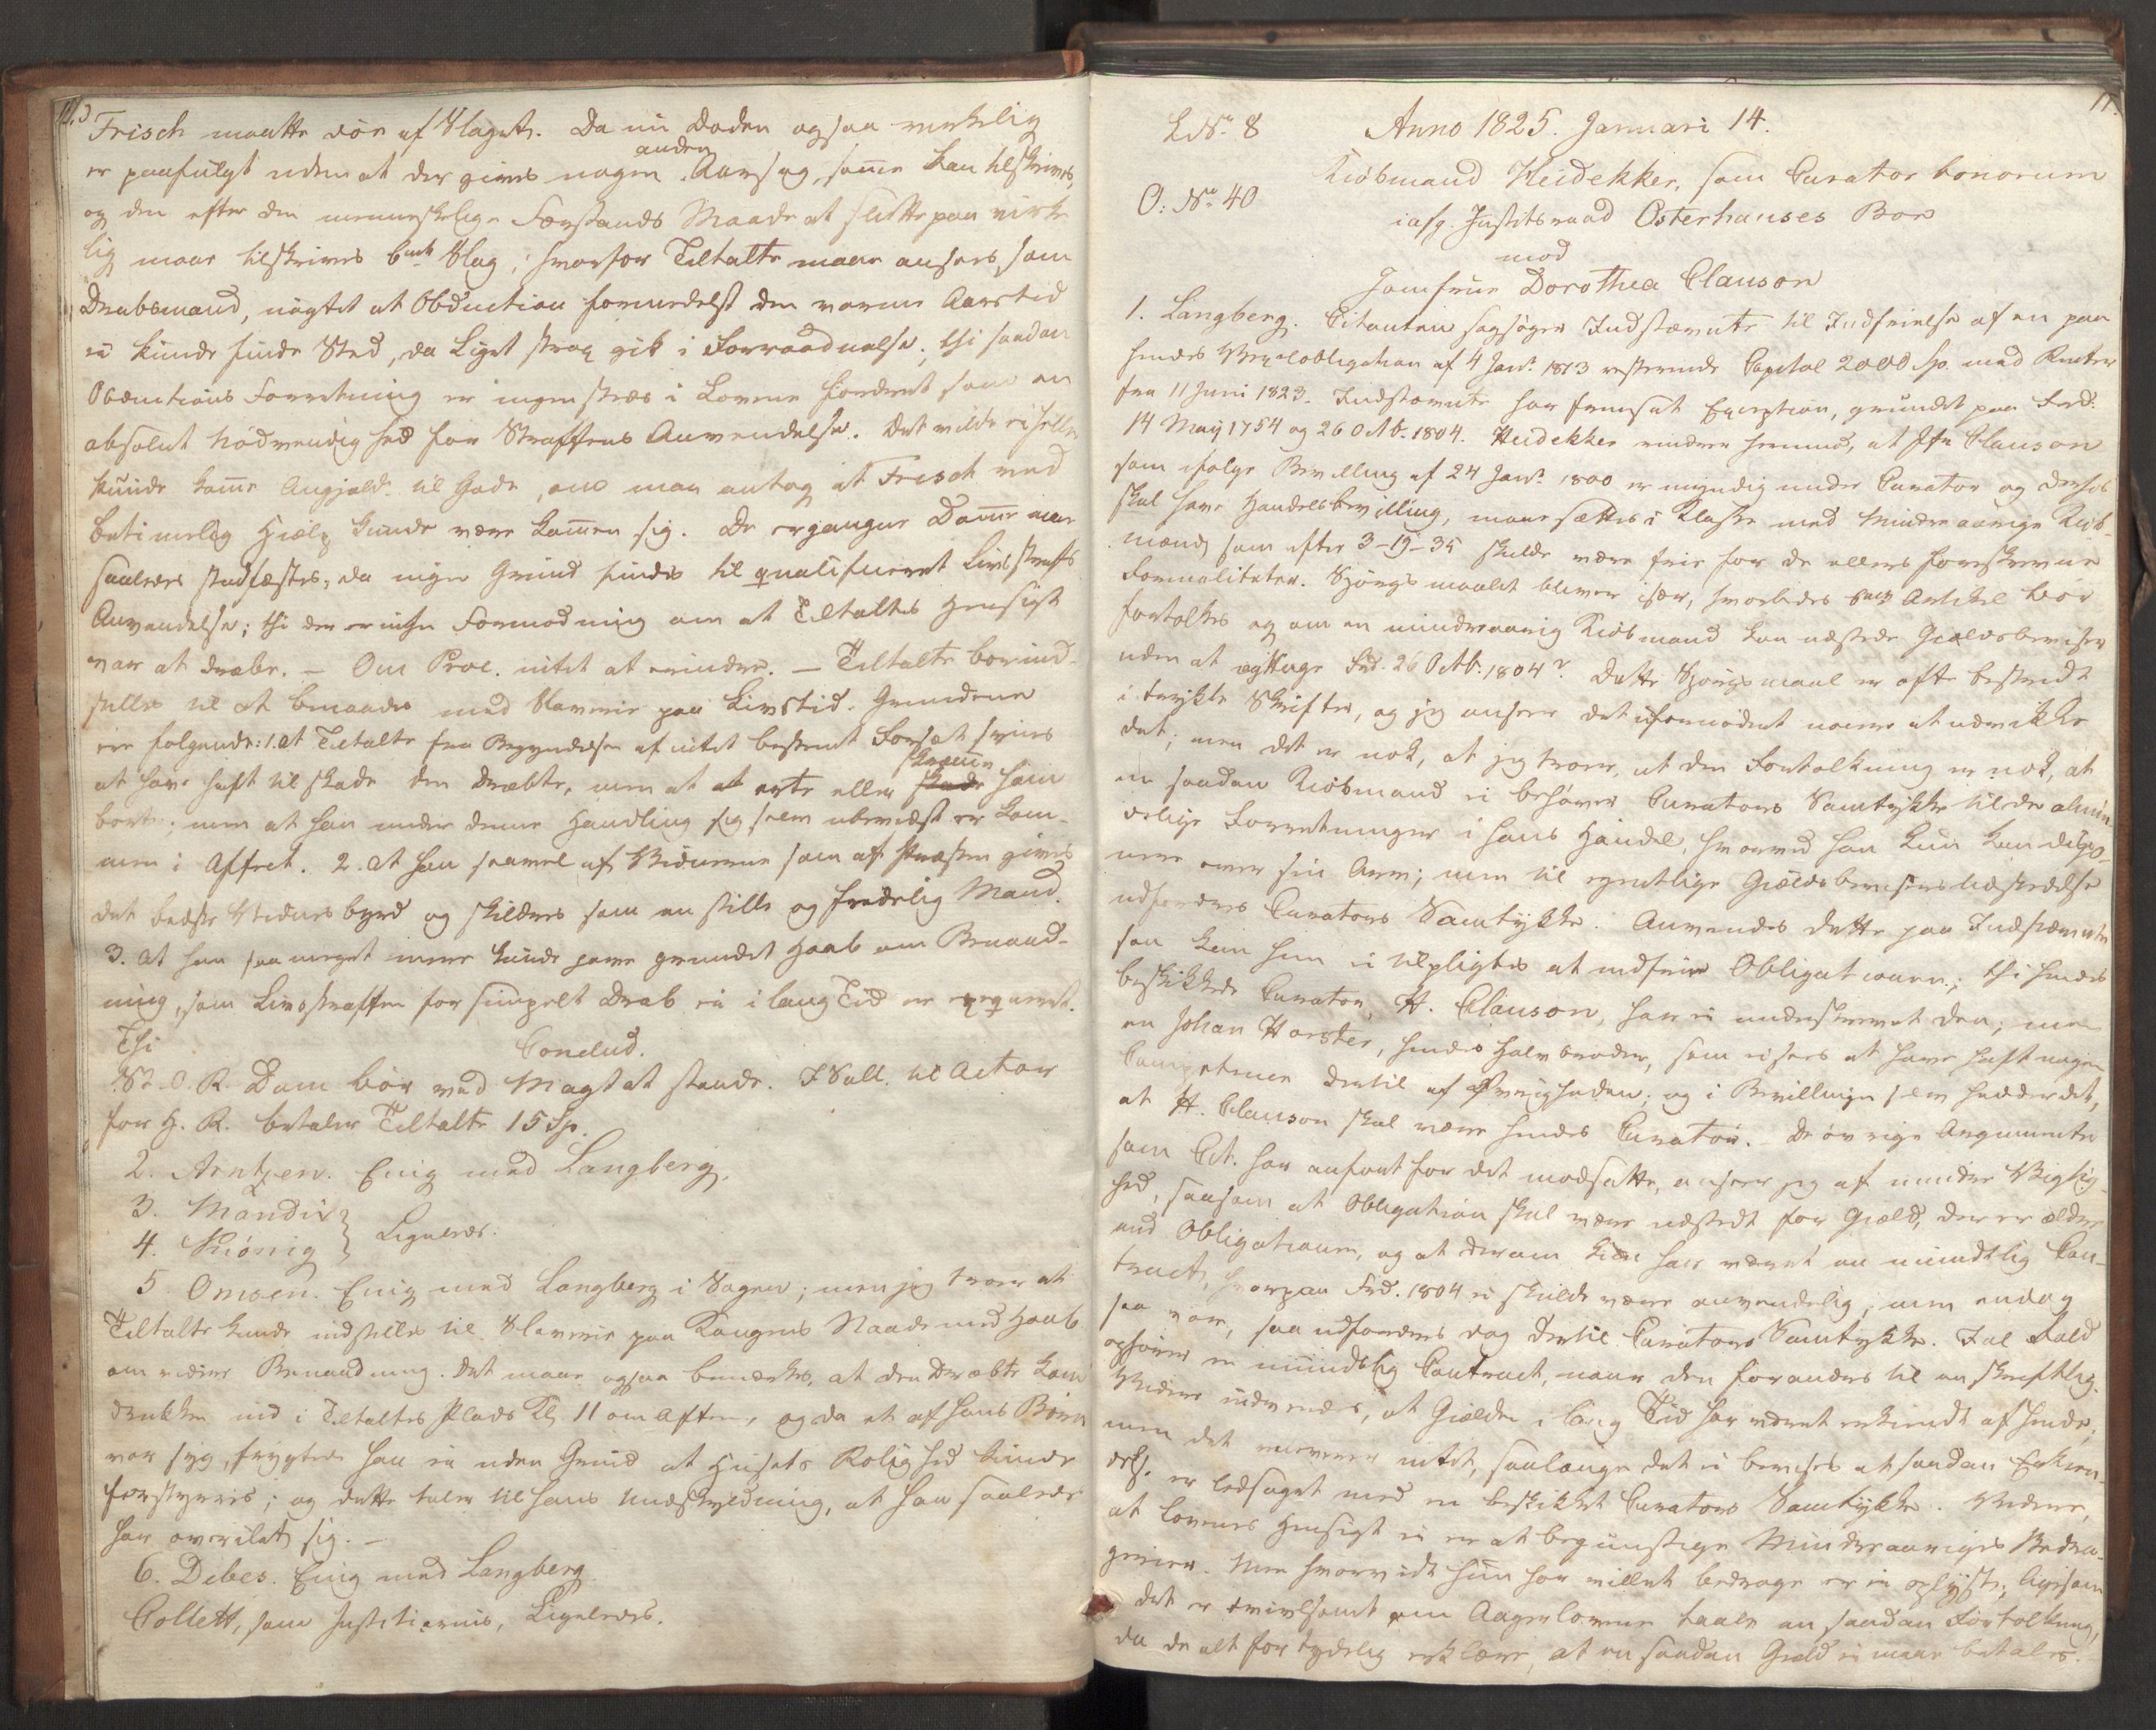 Frisch maatte døe af Slaget. Da nu Døden ogsaa virkelig
er paafulgt uden at der gives nogen anden Aarsag, som kan tilskrives,
og den efter den menneskelige Forstands Maade at slutte paa virke
lig maae tilskrives bmte Slag, hvorfor Tiltalte maae ansees som
Drabsmand, uagtet at Obduction formedelst den varme Aarstid
ei kunde finde Sted, da Liget strax gik i Forraadnelse; thi saadan
Obductions Forretning er ingensteds i Lovene fordret som en
absolut Nødvendighed for Straffens Anvendelse. Det vilde ei heller
kunde komme Angjeld. til Gode, om man antog at Frisch ved
betimelig Hielp kunde være kommen sig. De ergangne Domme maae
saaledes stadfæstes, da ingen Grund findes til qualificeret Livsstrafs
Anvendelse; thi der er ingen Formodning om at Tiltaltes Hensigt
var at dræbe. – Om Proc. intet at erindre. – Tiltalte bør ind-
stilles til at benaades med Slaverie paa Livstid. Grundene
ere følgende: 1. At Tiltalte fra Begyndelsen af intet bestemt Forsæt synes
at have haft til skade den Dræbte, men at at erte eller skade skræmme ham
bort; men at han under denne Handling sig selv ubevidst er kom-
men i Affect. 2. At han saavel af Vidnerne som af Præsten gives
det bedste Vidnesbyrd og skildres som en stille og fredelig Mand.
3. At han saa meget mere kunde have grundet Haab om Benaad-
ning, som Livsstraffen for simpelt Drab ei i lang Tid er exequeret.
Thi
Conclud.
St. O. R. Dom bør ved Magt at stande. I Sall. til Actor
for H. R. betaler Tiltalte 15 Sp.
2. Arntzen. Enig med Langberg.
3. Mandix
4. Kiønig } Ligeledes.
5 Omsen. Enig med Langberg i Sagen; men jeg troer at
Tiltalte kunde indstilles til Slaverie paa Kongens Naade med Haab
om videre Benaadning. Det maae ogsaa bemærkes, at den Dræbte kom
drukken ind i Tiltaltes Plads Kl. 11 om Aften, og da et af hans Børn
var syg, frygtede han ei uden Grund at Husets Rolighed kunde
forstyrres; og dette taler til hans Undskyldning, at han saaledes
har overilet sig. –
6. Debes. Enig med Langberg
Collett, som Justitiarius, Ligeledes.
11.
L. No 8 Anno 1825. Januari 14.
Kiøbmand Heidekker, som Curator bonorum
O: No 40
i afg. Justitsraad Osterhauses Boe
mod
Jomfrue Dorothea Clauson
1. Langberg. Citanten sagsøger Indstævnte til Indfrielse af en paa
hendes Vexelobligation af 4 Janr. 1813 resterende Capital 2000 Sp. med Renter
fra 11 Juni 1823. Indstævnte har fremsat Exception, grundet paa Frd:
14 May 1754 og 26 Octb. 1804. Heidekker erindrer herimod, at Jfr Clauson
som ifølge Bevilling af 24 Janr. 1800 er myndig under Curator og derhos
skal have Handelsbevilling, maae sættes i Klasse med Mindreaarige Kiøb-
mænd, som efter 3-19-35 skulde være frie for de ellers foreskrevne
Formaliteter. Spørgsmaalet bliver især, hvorledes bmte Artikel bør
fortolkes og om en mindreaarig Kiøbmand kan udstæde Gieldsbeviser
uden at iagttage Frd. 26 Octb. 1804? Dette Spørgsmaal er ofte bestridt
i trykte Skrifter, og jeg anseer det ufornødent nøiere at udvikle
det; men det er nok, at jeg troer, at den Fortolkning er nok, at
en saadan Kiøbmand ei behøver Curators Samtykke til de almin
delige Forretninger i hans Handel, hvorved han kun kan dispo-
nere over sin Avn; men til egentlige Gieldsbevisers Udstædelse
udfordres Curators Samtykke. Anvendes dette paa Indstævnte
saa kan hun ei tilpligtes at indfrie Obligationen; thi hendes
beskikkede Curator, H. Clauson, har ei underskrevet den; men
en Johan Horster, hendes Halvbroder, som ei sees at have haft nogen
Competence dertil af Øvrigheden; og i Bevillingen selv hedder det,
at H. Clauson skal være hendes Curator. De øvrige Argumenter
som Cit. har anført for det modsatte, anseer jeg af mindre Vigtig-
hed, saasom at Obligation skal være udstedt for Gield, der er ældre
end Obligationen, og at derom kun har været en mundtlig Con-
tract, hvorpaa Frd. 1804 ei skulde være anvendelig; men endog
saa var, saa udfordres dog dertil Curators Samtykke. I al Fald
ophører en mundtlig Contract, naar den forandres til en skriftlig.
Videre indvendes, at Gielden i lang Tid har været erkiendt af hende;
men det relevere intet, saalænge det ei bevises at saadan Erkien-
delse er ledsaget med en beskikket Curators Samtykke. Videre,
at Lovenes Hensigt ei er at begunstige Mindreaariges Bedra-
gerier. Men hvorvidt hun har villet bedrage er ei oplyst, ligesom
det er tvivlsomt om Aagerlovene taale en saadan Fortolkning,
da de alt for tydelig erklære, at en saadan Gield ei maae betales.